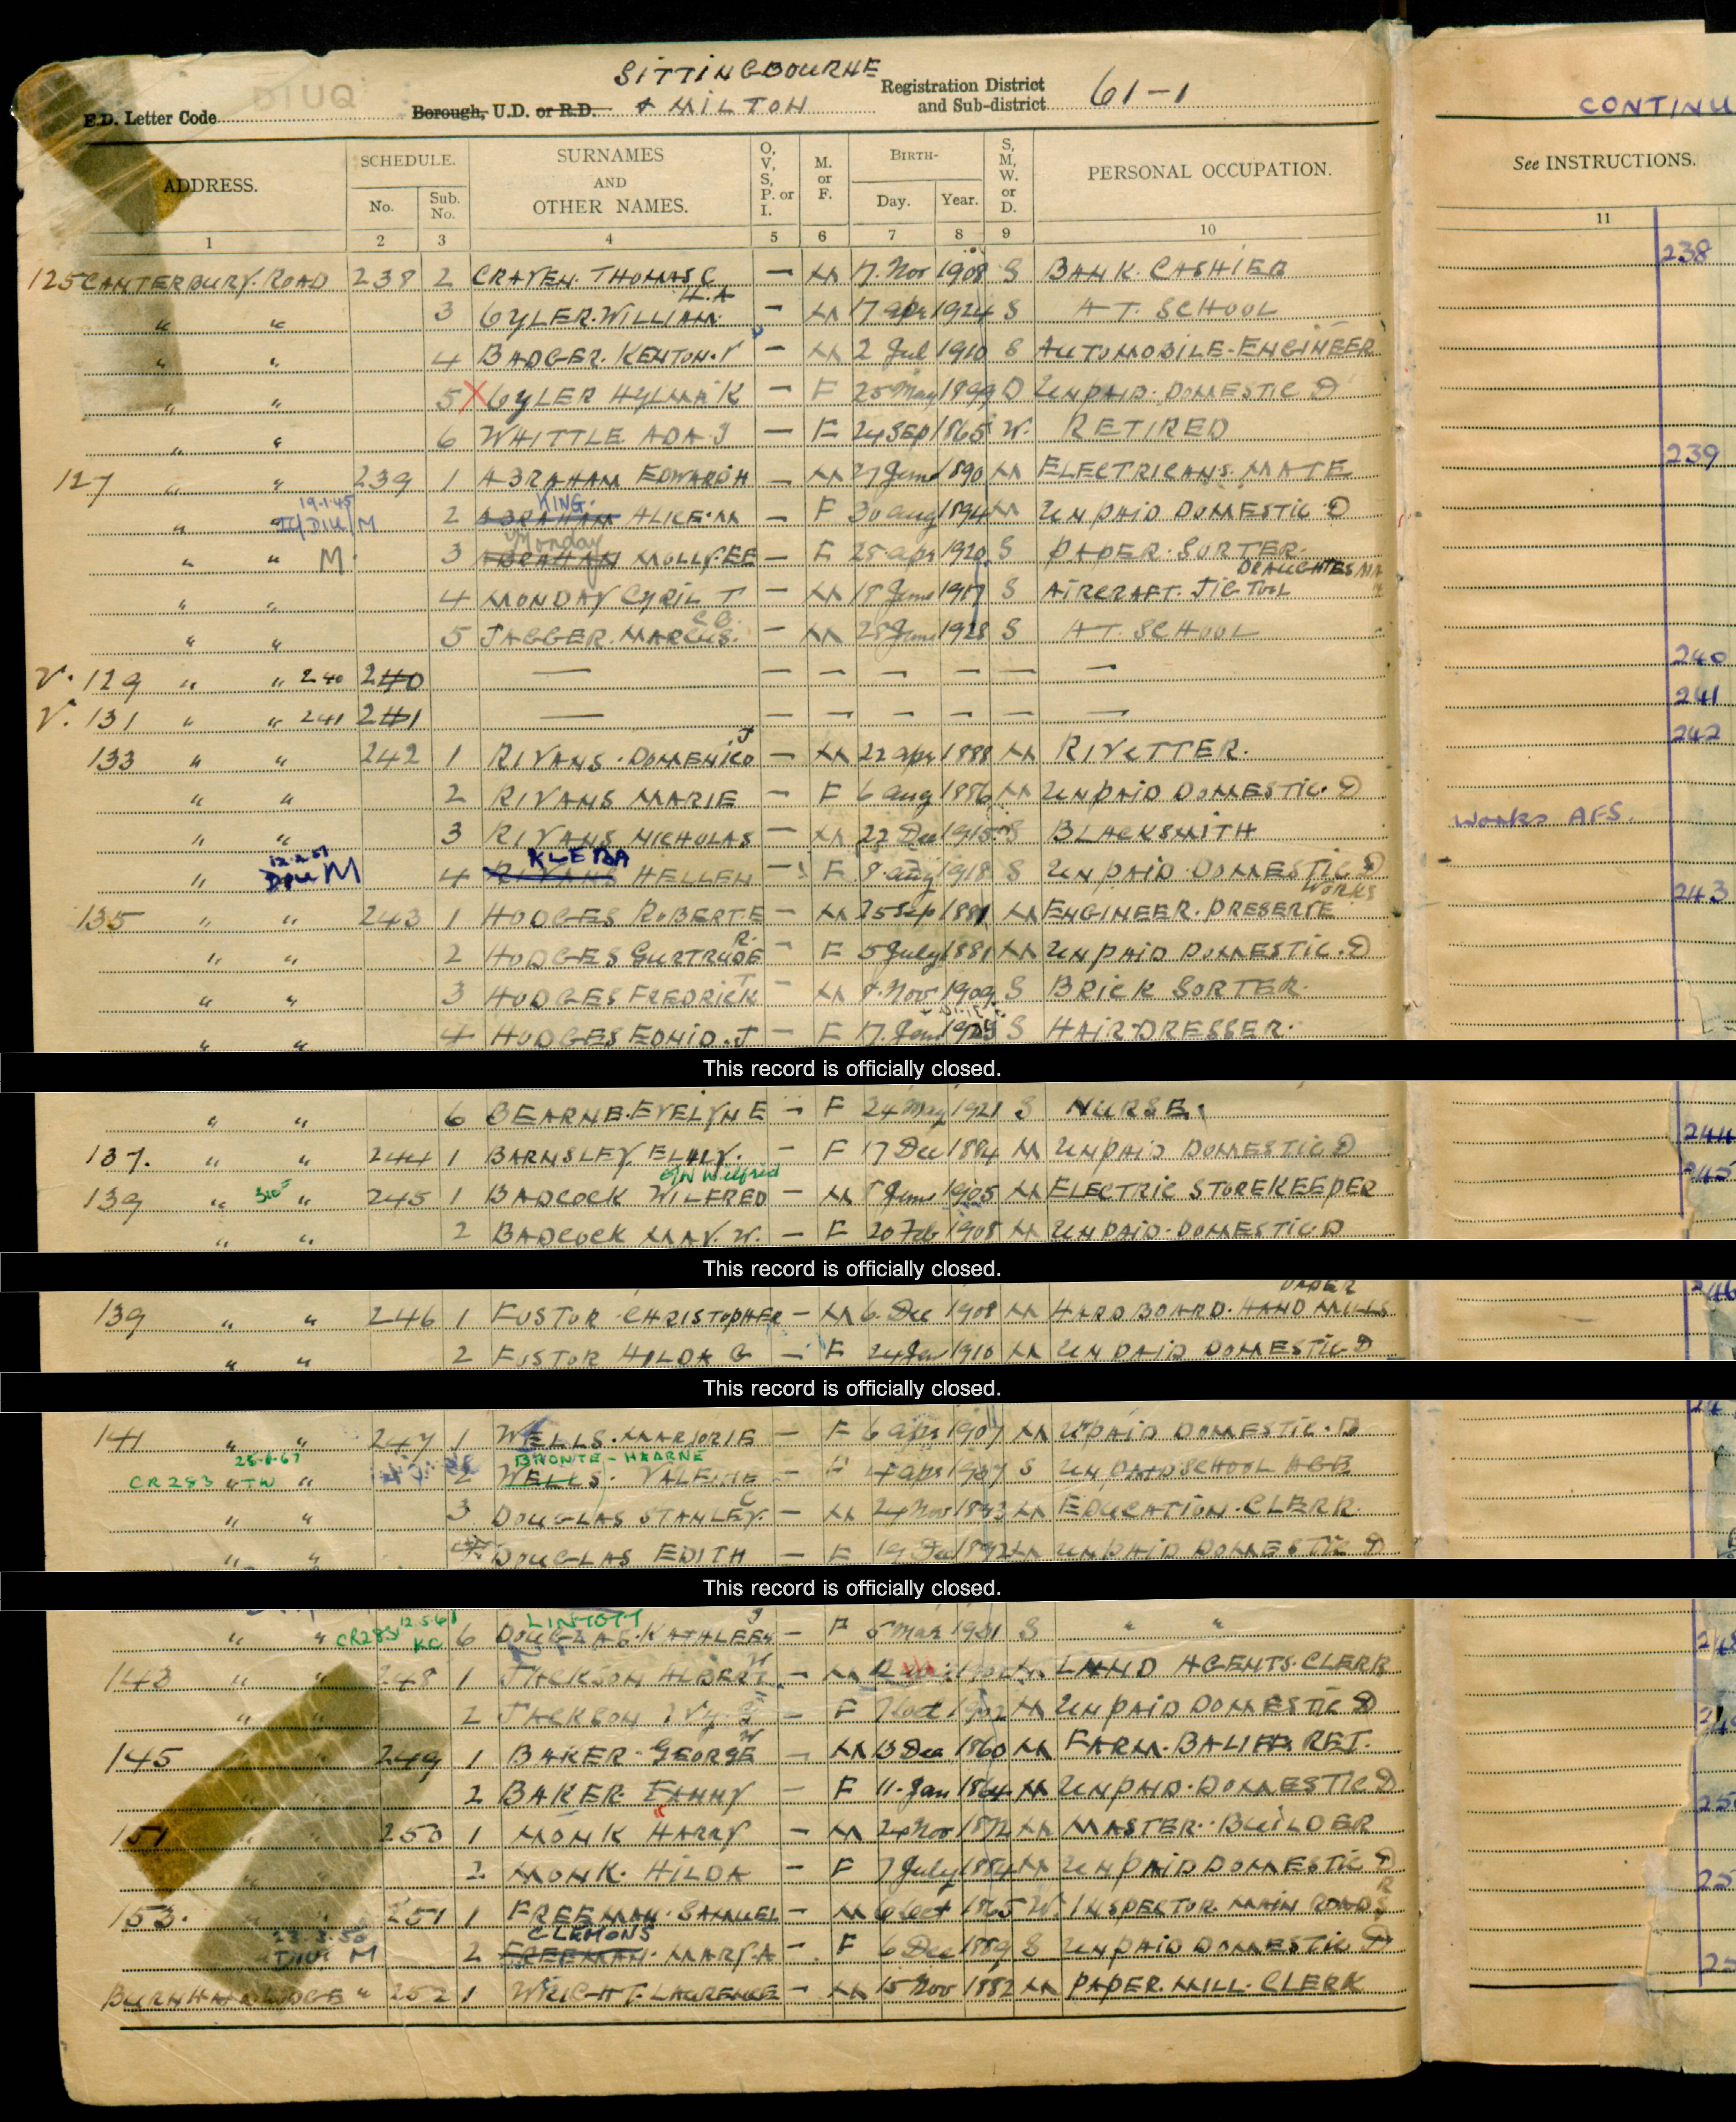 SITTINGBOURNE
DIUQ
E.D. Letter Code Borough, U.D. or R.D. & MILTON Registration District and Sub-district 61-1
CONTINU
ADDRESS. SCHEDULE. No. Sub. No. SURNAMES AND OTHER NAMES. O, V, S, P. or I. M. or F. BIRTH- Day. Year. S, M, W. or D. PERSONAL OCCUPATION. See INSTRUCTIONS.
1 2 3 4 5 6 7 8 9 10 11
125 CANTERBURY. ROAD 238 2 CRAVEN. THOMAS C — M 17. Nov 1908 S BANK. CASHIER 238
" " 3 GYLER. WILLIAM. H.A — M 17 apr 1924 S AT. SCHOOL
" " 4 BADGER. KENTON. V — M 2 Jul 1910 S AUTOMOBILE-ENGINEER
" " 5 X GYLER HYLMA K — F 25 May 1899 D UNPAID. DOMESTIC D
" " 6 WHITTLE ADA. J — F 24 SEP 1865 W. RETIRED
127 " " 239 1 ABRAHAM EDWARD H — M 27 June 1890 M ELECTRICANS. MATE 239
19.1.45
" " DIU/M 2 ABRAHAM KING. ALICE. M — F 30 aug 1894 M UNPAID DOMESTIC D
" " M 3 ABRAHAM Monday MOLLY. EE — F 28 apr 1920 S PAPER. SORTER.
" " 4 MONDAY CYRIL T — M 18 June 1917 S AIRCRAFT. JIG TOOL DRAUGHTESMAN
" " 5 JAGGER. MARCUS. — M 28 June 1928 S AT. SCHOOL
V. 129 " " 240 240 — — — — — — — 240
V. 131 " " 241 241 — — — — — — — 241
133 " " 242 1 RIVANS. DOMENICO J — M 22 apr 1888 M RIVETTER. 242
" " 2 RIVANS MARIE — F 6 aug 1886 M UNPAID DOMESTIC. D
" " 3 RIVANS NICHOLAS — M 22 Dec 1915 S BLACKSMITH works AFS.
" M 4 RIVANS HELLEN — F 8 aug 1918 S UNPAID. DOMESTIC D
135 " " 243 1 HODGES ROBERT. E — M 25 Sep 1881 M ENGINEER. PRESERVE WORKS 243
" " 2 HODGES GURTRUDE R. — F 5 July 1881 M UNPAID DOMESTIC. D
" " 3 HODGES FREDRICK T — M 8. Nov 1909 S BRICK SORTER.
" " 4 HODGES EDNID. J — F 17. Jan S HAIRDRESSER.
This record is officially closed.
" " 6 BEARNE. EVELYN E — F 24 May 1921 S NURSE.
137. " " 244 1 BARNSLEY EMILY. — F 17 Dec 1884 M UNPAID DOMESTIC D 244
139 " " 245 1 BADCOCK WILFRED Wilfrid — M June 1905 M ELECTRIC STOREKEEPER 245
" " 2 BADCOCK MAY. W. — F 20 Feb 1908 M UNPAID. DOMESTIC D
This record is officially closed.
139 " " 246 1 FUSTOR. CHRISTOPHER — M 6. Dec 1908 M HARDBOARD. HAND MILLS PAPER 246
" " 2 FUSTOR HILDA G — F 24 1910 M UNPAID DOMESTIC D
This record is officially closed.
141 " " 247 1 WELLS. MARJORIE — F 6 apr 1907 M UNPAID DOMESTIC. D
CR 283 " TW " 25.1.67 2 WELLS. BRONTE-HEARNE VALERIE — F apr S SCHOOL
" " 3 DOUGLAS STANLEY. C — M 24 Nov M EDUCATION. CLERK.
" " DOUGLAS EDITH — F 19 1892 M UNPAID DOMESTIC D
This record is officially closed.
" " CR283 12.5.61 KC 6 DOUGLAS. LINTOTT KATHLEEN J — F 5 Mar S " "
143 " " 248 1 JACKSON ALBERT W — M 12 M LAND AGENTS. CLERK
" " 2 JACKSON IVY. — F 7 Oct 1902 M UNPAID DOMESTIC D
145 249 1 BAKER. GEORGE W — M 13 Dec 1860 M FARM. BALIFF RET.
2 BAKER. FANNY — F 11. Jan 1864 M UNPAID. DOMESTIC D
151 250 1 MONK HARRY — M 24 Nov 1872 M MASTER. BUILDER
2 MONK. HILDA — F 7 July 1884 M UNPAID DOMESTIC D
153. 251 1 FREEMAN. SAMUEL — M 6 Oct 1865 W INSPECTOR. MAIN ROADS
23.3.50 DIUI M 2 FREEMAN. CLEMONS MARY. A — F 6 Dec 1889 S UNPAID DOMESTIC D
BURNHAM LODGE " 252 1 WRIGHT. LAURENCE — M 15 Nov 1882 M PAPER. MILL. CLERK